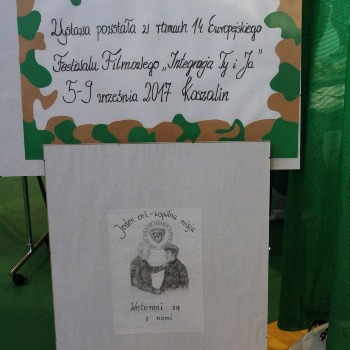 Wystawa powstała w ramach 14 Europejskiego
Festiwalu Filmowego „Integracja Ty i Ja”
5-9 września 2017 Koszalin
Jeden cel - wspólna misja
Weterani są
z nami